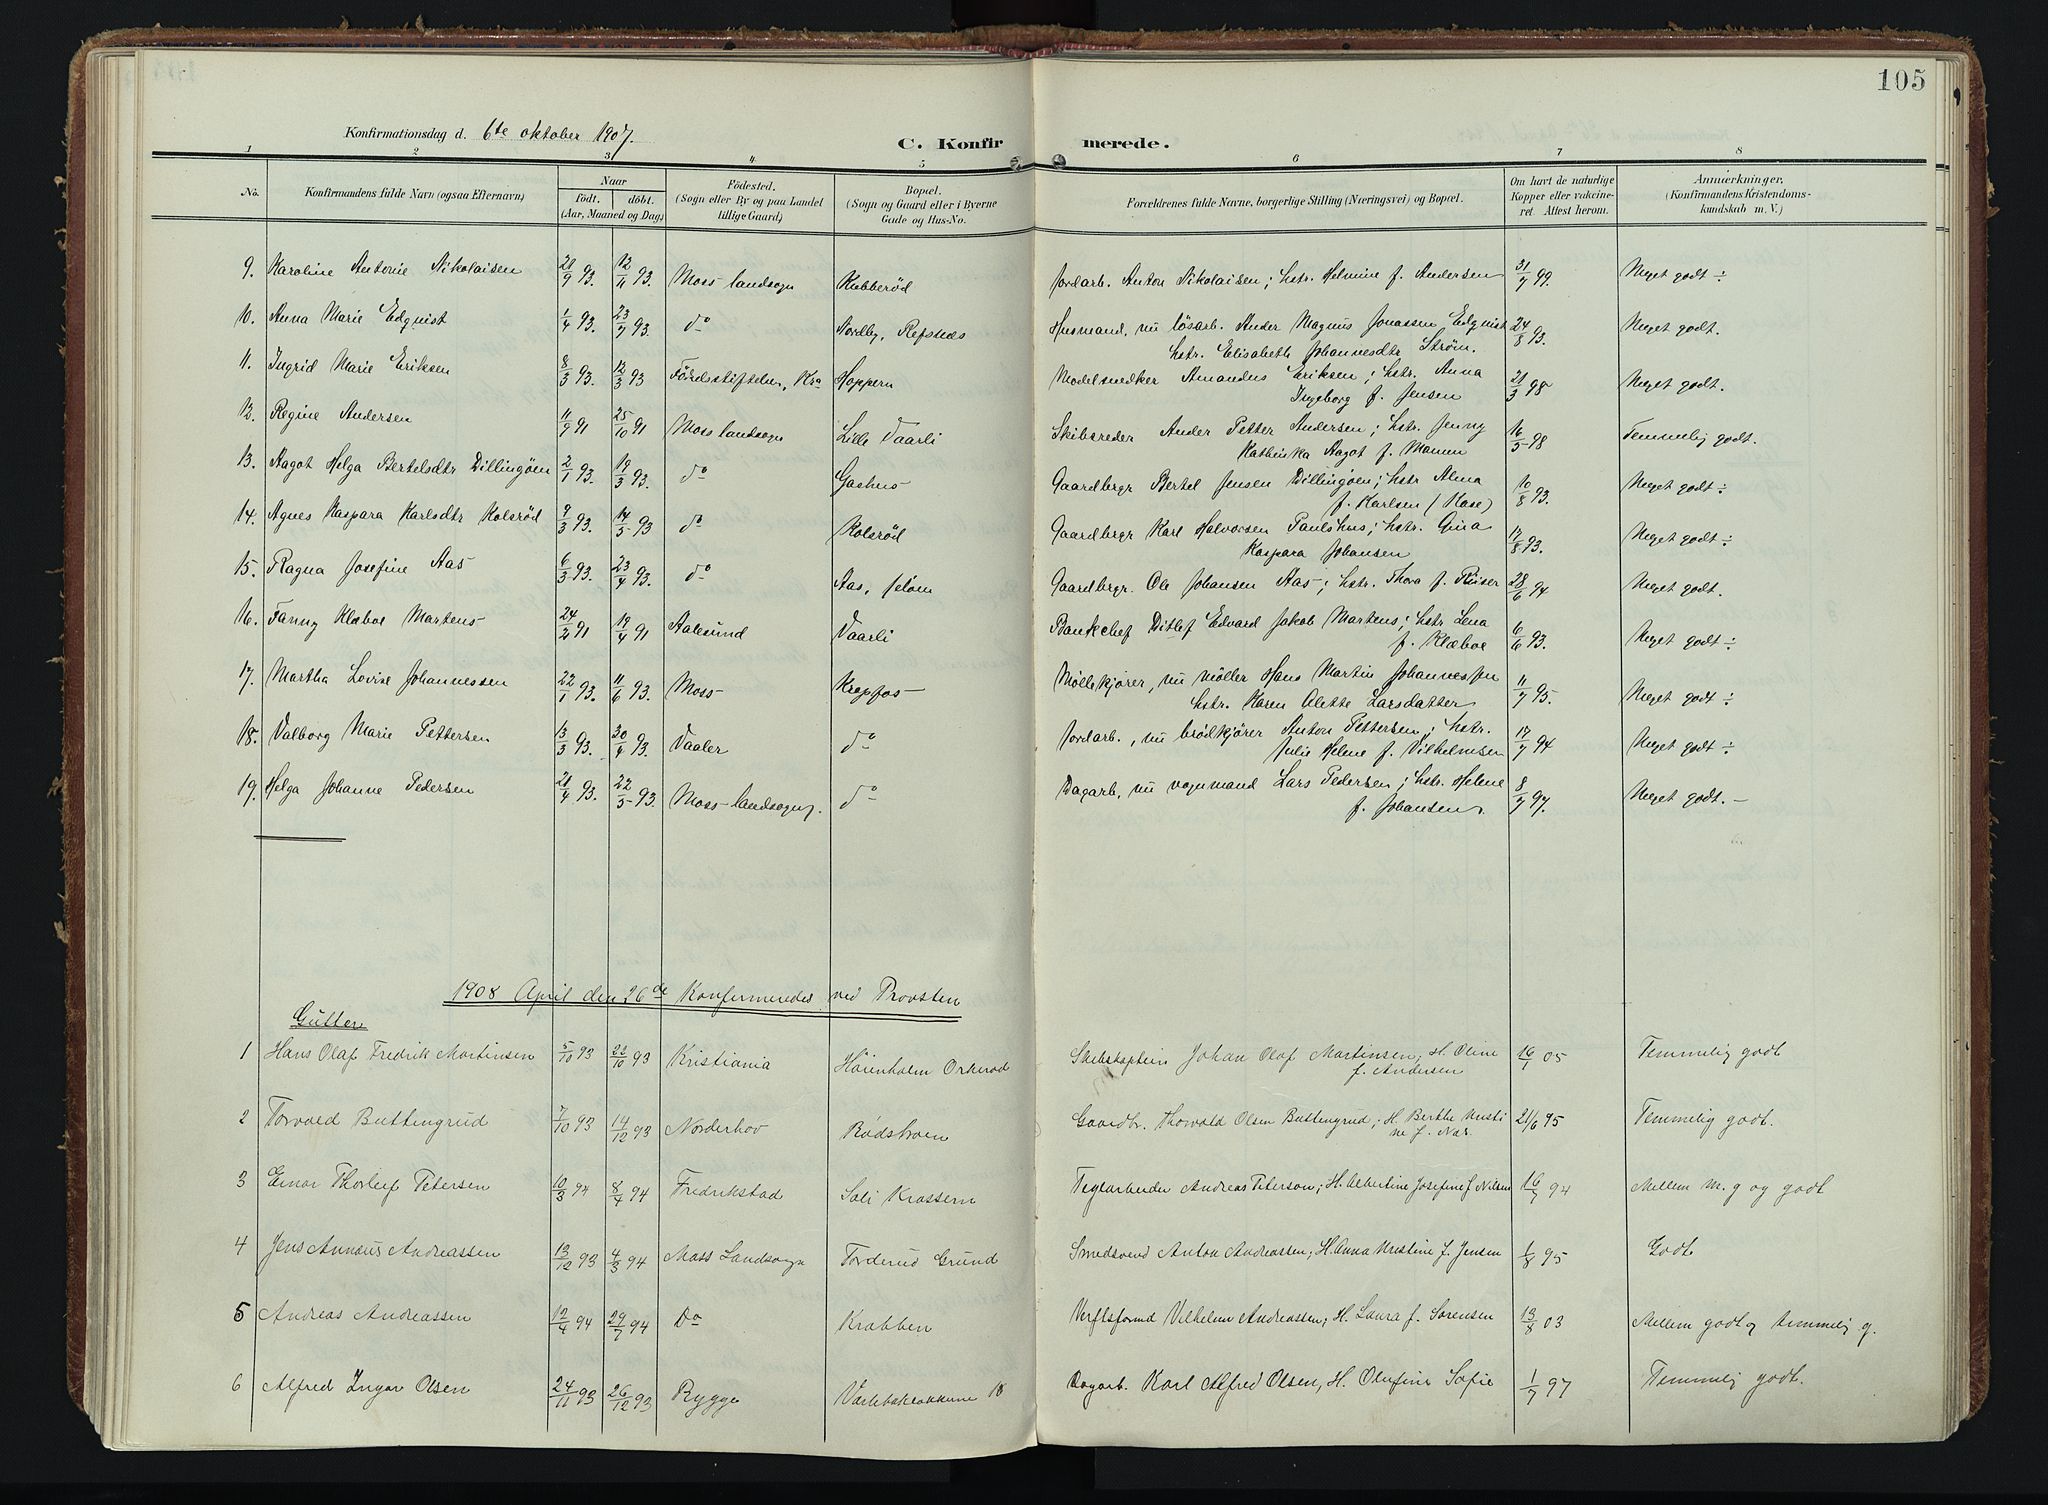 105
Konfirmationsdag d. 6te oktober 1907.
C. Konfirmerede.
1 2 3 4 5 6 7 8
No. Konfirmandens fulde Navn (ogsaa Efternavn) Naar født. døbt. (Aar, Maaned og Dag) Fødested. (Sogn eller By og paa Landet tillige Gaard) Bopæl. (Sogn og Gaard eller i Byerne Gade og Hus-No. Forældrenes fulde Navne, borgerlige Stilling (Næringsvei) og Bopæl. Om havt de naturlige Kopper eller vakcineret. Attest herom. Anmærkninger. (Konfirmandens Kristendomskundskab m. V.)
9. Karoline Antonie Nikolaisen 21/9 93. 12/11 93. Moss landsogn Kubberød Jordarb. Anton Nikolaisen; hstr. Helmine f. Andersen 31/7 99. Meget godt ÷
10. Anna Marie Edquist 1/4 93. 23/7 93. do Nordby, Refsnes Husmand, nu løsarb. Ander Magnus Jonassen Edquist 24/8 93. Meget godt.
hstr. Elisabeth Johannesdtr Strøm.
11. Ingrid Marie Eriksen 8/3 93. 12/3 93 Fødselsstiftelsen, Kra Hoppern Modelsnedker Amandus Eriksen; hstr. Anna 21/3 98 Meget godt.
Ingeborg f. Jensen
12. Regine Andersen 11/9 91 25/10 91 Moss landsogn Lille Vaarli Skibsreder Ander Petter Andersen; hstr. Jenny 16/5 98 Temmelig godt.
Kathinka Aagot f. Mamen
13. Aagot Helga Bertelsdtr Dillingøen 2/1 93. 19/3 93. do Gashus Gaardbrgr Bertel Jensen Dillingøen; hstr Alma 10/8 93. Meget godt ÷
f. Karlsen (Kase)
14. Agnes Kaspara Karlsdtr Kolsrød 9/3 93. 14/5 93 do Kolsrød Gaardbrgr Karl Halvorsen Paulshus; hstr. Gina 17/8 93. Meget godt ÷
Kaspara Johansen
15. Ragna Josefine Aas 6/3 93. 23/4 93. do Aas, Jeløen Gaardbrgr. Ole Johansen Aas; hstr. Thora f. 28/6 94 Meget godt.
16. Fanny Klæboe Martens 24/2 91 19/4 91 Aalesund Vaarli Bankchef Ditlef Edvard Jakob Martens; hstr Lena 6/6 93. Meget godt ÷
f. Klæboe
17. Martha Lovise Johannessen 22/1 93. 11/6 93. Moss Krapfos Møllekjører, nu møller Hans Martin Johannessen 11/7 95. Meget godt ÷
hstr. Karen Alette Larsdatter
18. Valborg Marie Pettersen 13/3 93. 30/4 93. Vaaler do Jordarb., nu brødkjører Anton Pettersen; hstr. 17/7 94 Meget godt ÷
Julie Helene f. Vilhelmsen
19. Helga Johanne Pedersen 21/4 93. 22/5 93. Moss landsogn. do Dagarb., nu vognmand Lars Pedersen; hstr. Helene 8/7 97. Meget godt. –
f. Johansen.
1908 April den 26de Konfirmeredes ved Provsten
Gutter
1 Hans Olaf Fredrik Martinsen 5/10 93 22/10 93 Kristiania Høienholm Orkerød Skibskaptein Johan Olaf Martinsen, H. Oline 16/1 05 Temmelig godt
f. Andersen
2 Torvald Buttengrud 7/10 93 14/12 93 Norderhov Rødstuen Gaardbr. Thorvald Olsen Buttengrud; H. Berthe Kristi 21/6 95 Temmelig godt.
ne f. Næs.
3 Einar Thorleif Petersen 10/3 94 8/4 94 Fredrikstad Soli Krossern Teglarbeider Andreas Peterson; H. Albertine Josefine f. Nilsen 16/7 94 Mellem m. g og godt
4 Jens Annæus Andreassen 13/12 93 4/3 94 Moss Landsogn Torderud Grund Smedsvend Anton Andreassen; H. Anna Kristine f. Jensen 1/8 95 Godt
5 Andreas Andreassen 12/4 94 29/7 94 Do Krabben Verftsformd Vilhelm Andreassen; H. Laura f. Sørensen 13/8 03 Mellem godt og temmelig g.
6 Alfred Ingar Olsen 24/11 93 26/12 93 Rygge Varlebakløkkerne 18 Dagarb. Karl Alfred Olsen, H. Olufine Sofie 1/7 97 Temmelig godt.